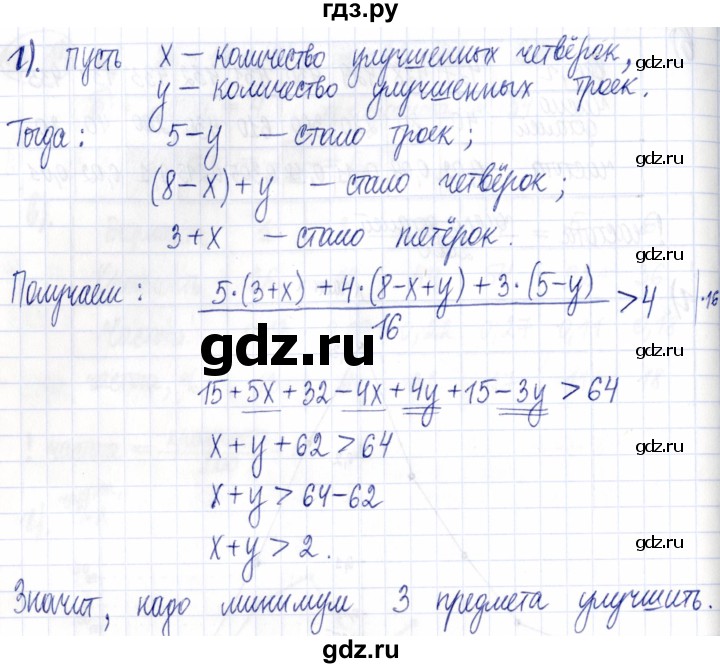 гдз.ру
1). Пусть x – количество улучшенных четвёрок,
y – количество улучшенных троек.
Тогда: 5-y – стало троек;
(8-x)+y – стало четвёрок;
3+x – стало пятёрок.
Получаем: 5·(3+x) + 4·(8-x+y) + 3·(5-y) / 16 > 4 |·16
15+5x+32-4x+4y+15-3y > 64
x+y+62 > 64
x+y > 64-62
x+y > 2.
Значит, надо минимум 3 предмета улучшить.
gdz.ru
gdz.ru
gdz.ru
gdz.ru
gdz.ru
gdz.ru
gdz.ru
gdz.ru
gdz.ru
gdz.ru
gdz.ru
gdz.ru
gdz.ru